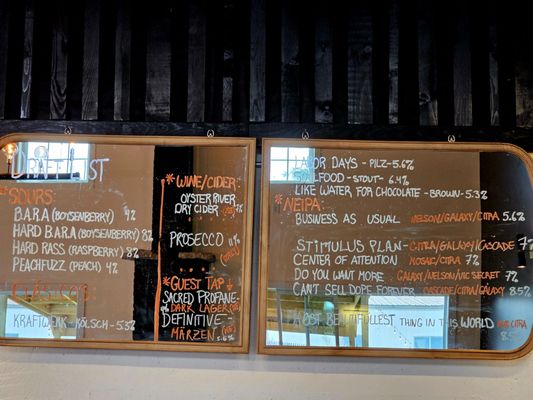 DRAFT LIST
*SOURS:
BARA (BOYSENBERRY) 4%
HARD BARA (BOYSENBERRY) 8%
HARD RASS (RASPBERRY) 8%
PEACHFUZZ (PEACH) 4%
KRAFTWERK - KÖLSCH - 5.3%
*WINE/CIDER:
OYSTER RIVER
DRY CIDER
PROSECCO 11%
*GUEST TAP
SACRED PROFANE
DARK LAGER
DEFINITIVE-
MÄRZEN
LABOR DAYS - PILZ - 5.6%
FOOD - STOUT - 6.4%
LIKE WATER FOR CHOCOLATE - BROWN - 5.3%
*NEIPA:
BUSINESS AS USUAL NELSON/GALAXY/CITRA 5.6%
STIMULUS PLAN - CITRA/GALAXY/CASCADE 7%
CENTER OF ATTENTION MOSAIC/CITRA 7%
DO YOU WANT MORE GALAXY/NELSON/VIC SECRET 7%
CAN'T SELL DOPE FOREVER CASCADE/CITRA/GALAXY 8.5%
MOST BEAUTIFULLEST THING IN THIS WORLD CITRA 8.5%